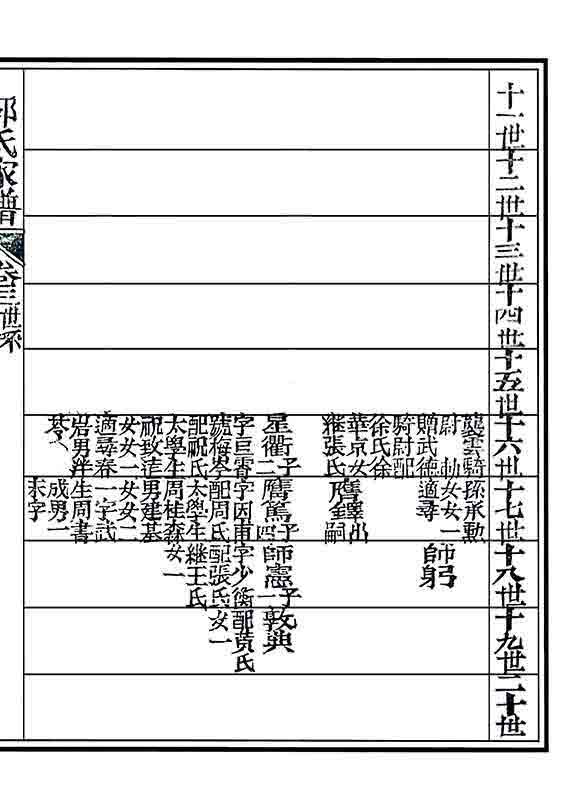 十一世
十二世
十三世
十四世
十五世
十六世
十七世
十八世
十九世
二十世
襲雲騎
尉 勅
贈武德
騎尉配
徐氏徐
華京女
繼張氏
星衢子二
字亘霄
號梅岑
配祝氏
太學生
祝致
女女一
適尋春
岩男洋
孫承勲
女女一
適尋
膺鐸出
嗣
膺篤子四
字因甫
配周氏
太學生
周桂森
男建基
女女二
一字武
生周書
成男一
未字
師躬
師憲子一
字少衡
配張氏
繼王氏
女一
敦典
配黄氏
女一
氏家譜
卷三世系